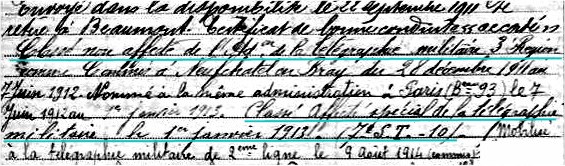 Envoyé dans la disponibilité le 22 septembre 1911 Se
retire à Beaumont. Certificat de bonne conduite accordé
Classé non affecté de la télégraphie militaire 3e Région
comme Commis à Neufchatel en Bray du 28 décembre 1911 au
7 juin 1912 Nommé à la même administration à Paris (Bau 93) le 7
Juin 1912 au 1er janvier 1913. Classé Affecté spécial de la télégraphie
militaire le 1er janvier 1913 (7e S.T.-10) (Mobilisé
à la télégraphie militaire de 2eme ligne le 9 Août 1914 (commis)